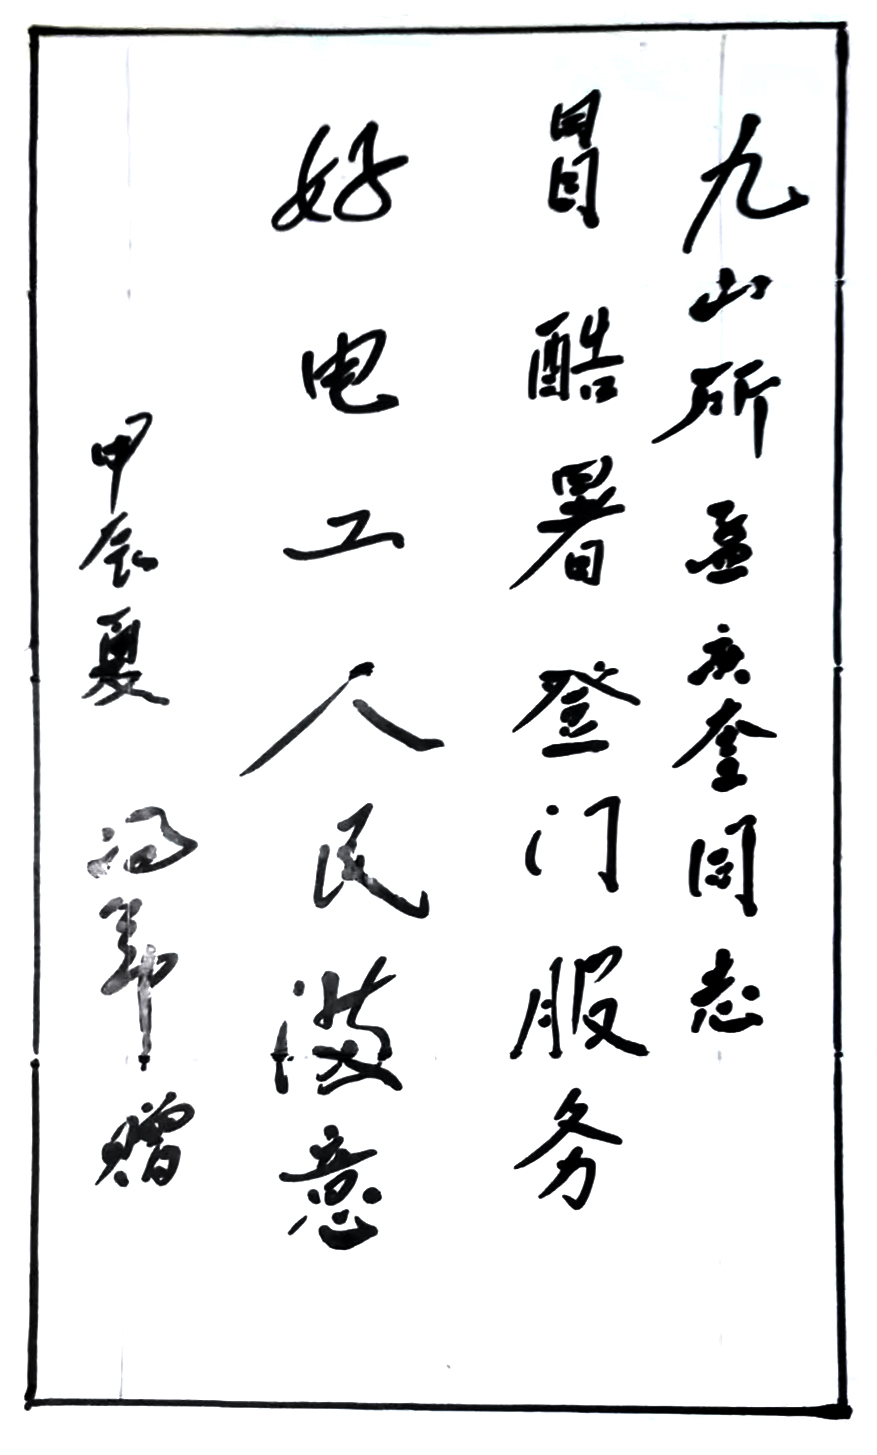 九山所孟庆奎同志
冒酷暑登门服务
好电工人民满意
甲辰夏 冯 赠